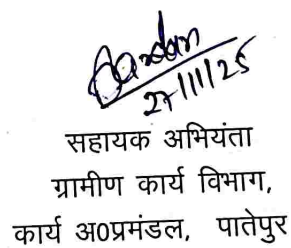 27/11/25
सहायक अभियंता
ग्रामीण कार्य विभाग,
कार्य अ0प्रमंडल, पातेपुर